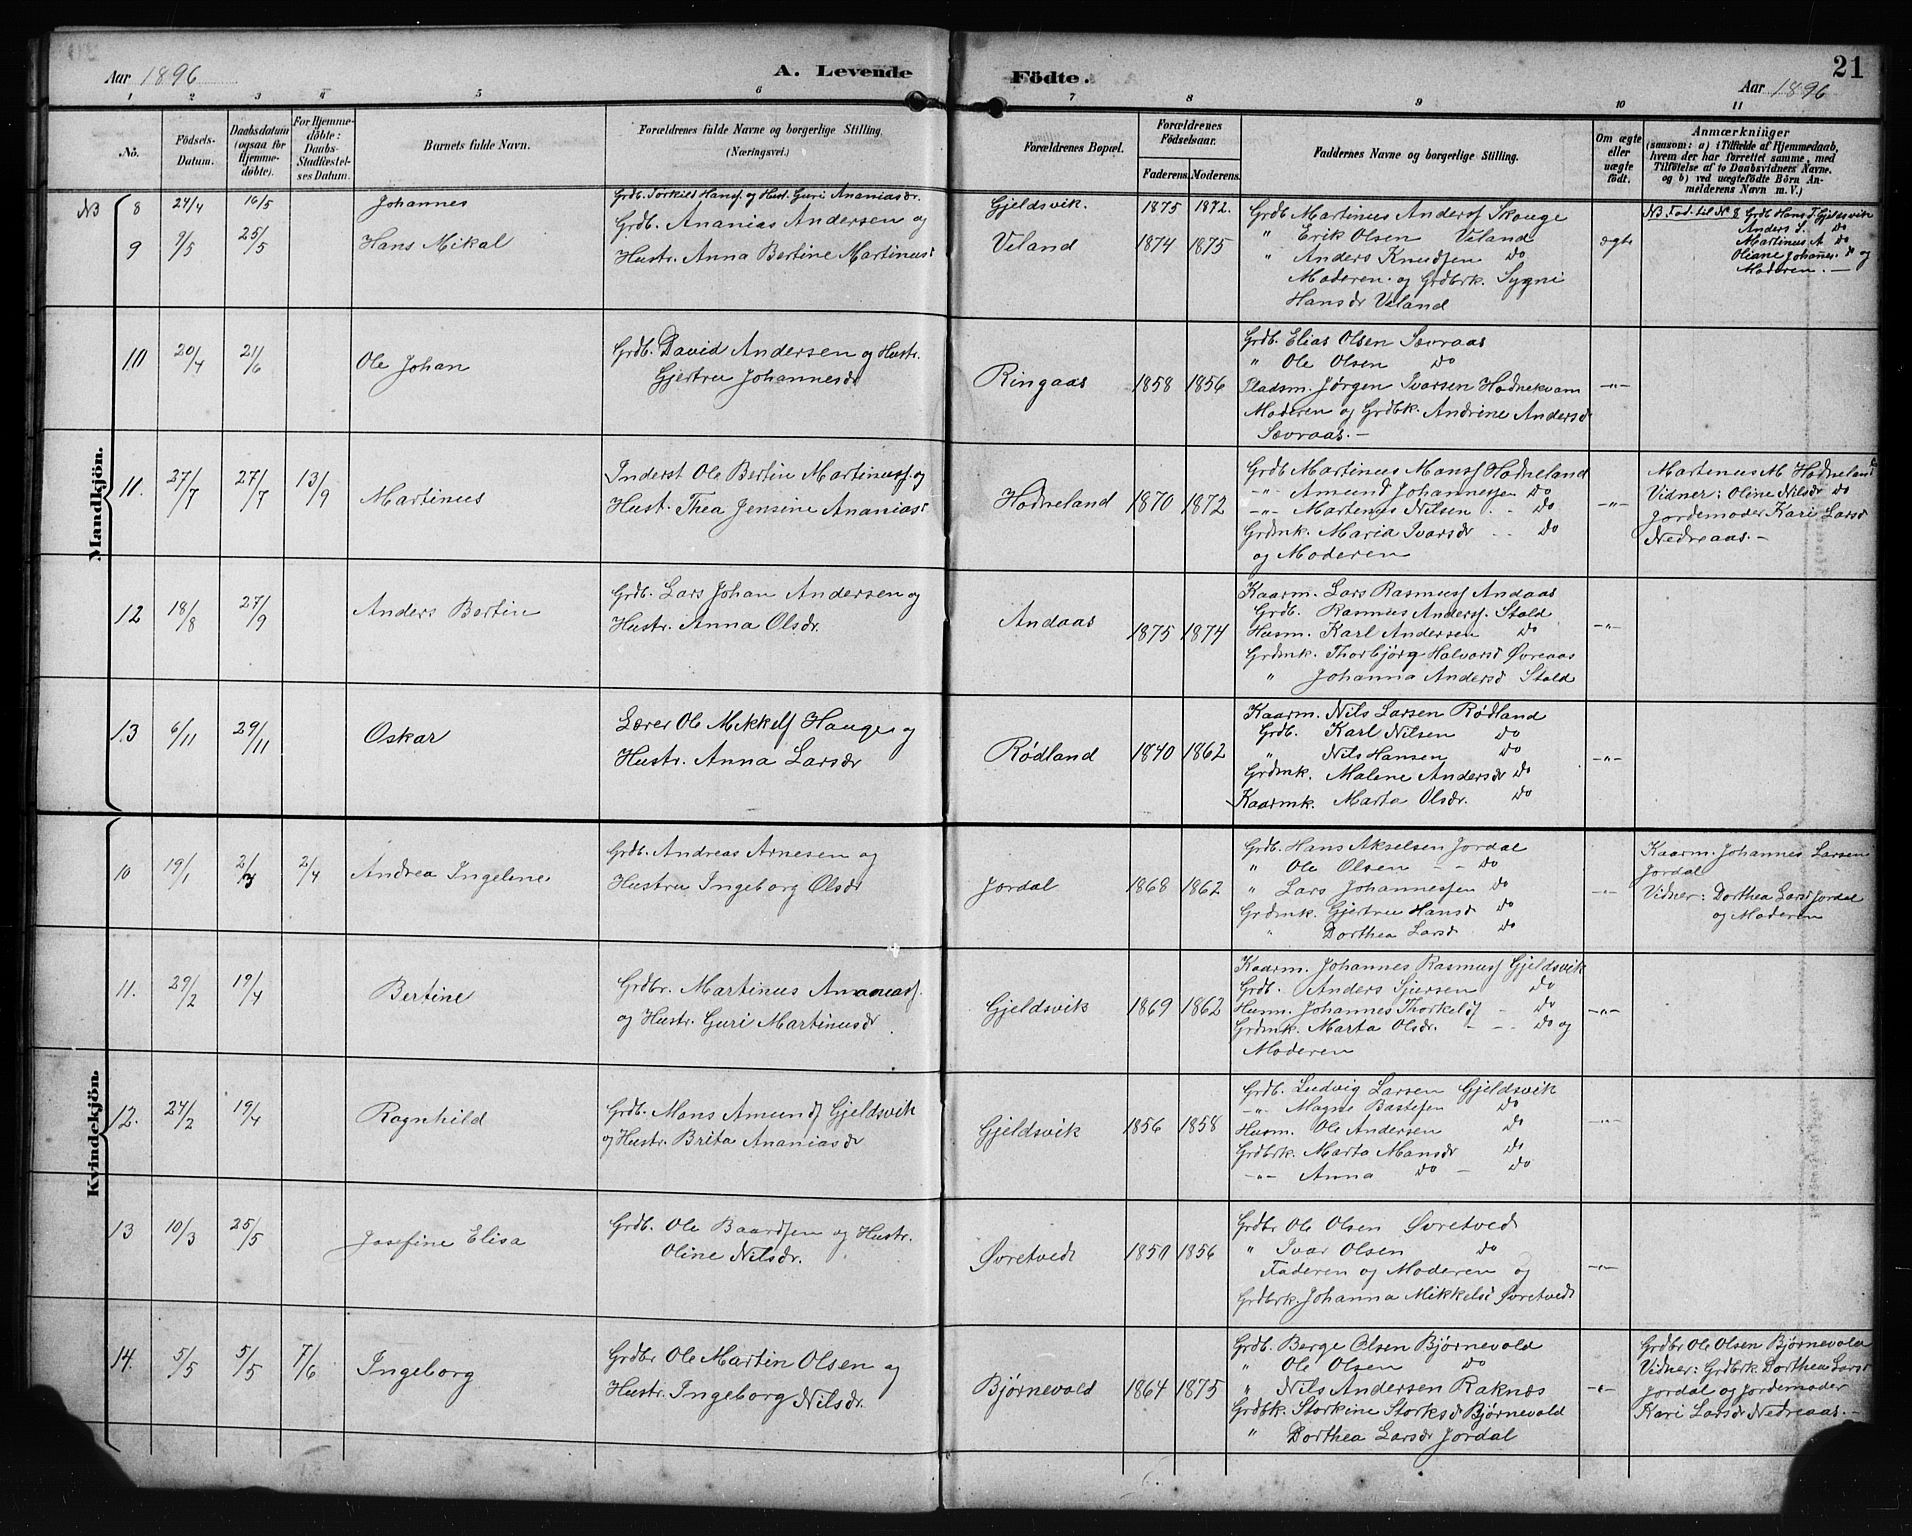 21
Aar 1896 A. Levende Födte. Aar 1896
1 2 3 4 5 6 7 8 9 10 11
No. Födsels-Datum. Daabsdatum (ogsaa for Hjemme-døbte). For Hjemme-døbte: Daabs-Stadfæstel-ses Datum. Barnets fulde Navn. Forældrenes fulde Navne og borgerlige Stilling. (Næringsvei.) Forældrenes Bopæl. Forældrenes Födselsaar. Faderens. Moderens. Faddernes Navne og borgerlige Stilling. Om ægte eller uægte født. Anmærkninger (saasom: a) i Tilfælde af Hjemmedaab, hvem der har forrettet samme, med Tilföielse af to Daabsvidners Navne, og b) ved uægtefödte Börn An-melderens Navn m. V.)
Mandkjön.
NB 8 24/4 16/5 Johannes Grdb. Torkild Hanss. og Hust. Guri Ananiasdr. Gjeldsvik. 1875 1872.
NB. Fad. til No 8 Grdb Hans T. Gjeldsvik
Anders S. Do
Martinus A Do
Oliane Johannes. Do og
Moderen. —
9 9/5 25/5 Hans Mikal Grdb. Ananias Andersen og
Hustr. Anna Bertine Martinusd
Veland 1874 1875 Grdb Martinus Anderss Skauge
" Erik Olsen Veland ægte
" Anders Knudsen Do
Moderen og Grdbrk. Sygni
Hansdr Veland
10 20/4 21/6 Ole Johan Grdb. David Andersen og Hustr.
Gjertru Johannesdr
Ringaas 1858 1856 Grdb. Elias Olsen Sævraas
" Ole Olsen Do
Pladsm. Jørgen Ivarsen Hodnekvam —"—
Moderen og Grdbk. Andrine Andersd
Sævraas. —
11. 27/7 27/7 13/9 Martinus Inderst Ole Bertin Martinuss og
Hust. Thea Jensine Ananiasd
Hodneland 1870 1872 Grdb Martinus Manss Hodneland
—"— Amund Johannessen Do
—"— Martenus Nilsen Do —"—
Grdmk. Maria Ivarsdr Do
og Moderen
Martenus M. Hodneland
Vidner: Oline Nilsdr Do
Jordemoder Kari Larsd
Nedreaas. —
12 18/8 27/9 Anders Bertin Grdb. Lars Johan Andersen og
Hustr. Anna Olsdr.
Andaas 1875 1874 Kaarm. Lars Rasmuss Andaas
Grdb. Rasmus Anderss. Stald
Husm. Karl Andersen Do —"—
Grdmk. Thorbjørg Halvorsd Øvreaas
" Johanna Andersd Stald
13 6/11 29/11 Oskar Lærer Ole Mikkels Hauge og
Hustr. Anna Larsdr
Rødland 1840 1862 Kaarm. Nils Larsen Rødland
Grdb. Karl Nilsen Do
" Nils Hansen Do —"—
Grdmk. Malene Andersdr Do
Kaarmk. Marta Olsdr. Do
Kvindekjön.
10 19/1 2/4 Andrea Ingeline Grdb. Andreas Arnesen og
Hustru Ingeborg Olsdr
Jordal 1868 1862 Grdb. Hans Akselsen Jordal
" Ole Olsen — Do
" Lars Johannessen Do —"—
Grdmk. Gjertru Hansd Do
" Dorthea Larsd Do
Kaarm. Johannes Larsen
Jordal
Vidner: Dorthea Larsd Jordal
og Moderen
11. 29/2 19/4 Bertine Grdbr. Martinus Ananiass.
og Hustr. Guri Martinusdr
Gjeldsvik 1869 1862 Kaarm. Johannes Rasmuss Gjeldsvik
Grdb. Anders Sjursen Do
Husm. Johannes Thorkelds Do —"—
Grdmk. Marta Olsdr. — — Do og
Moderen
12. 24/2 19/4 Ragnhild Grdb. Mans Amunds Gjeldsvik
og Hustr. Brita Ananiasdr
Gjeldsvik 1856 1858 Grdb. Ludvig Larsen Gjeldsvik
—"— Magne Bastesen Do
Husm. Ole Andersen Do —"—
Grdbrk. Marta Mansdr Do
—"— Anna Do — Do
13 10/3 25/5 Josefine Elisa Grdb. Ole Baardsen og Hustr.
Oline Nilsdr.
Øvretvedt 1850 1856 Grdbr Ole Olsen Øvretvedt
" Ivar Olsen Do
Faderen og Moderen og —"—
Grdbrk. Johanna Mikkelsd Øvretvedt
14. 5/5 5/5 7/6 Ingeborg Grdbr Ole Martin Olsen og
Hustr. Ingeborg Nilsdr.
Bjørnevold 1864 1875 Grdb. Berge Olsen Bjørnevold
" Ole Olsen Do
" Nils Andersen Raknes —"—
Grdbk. Storkine Storksd Bjørnevold
" Dorthea Larsdr Jordal
Grdbr Ole Olsen Bjørnevold
Vidner: Grdbrk Dorthea Larsd
Jordal og Jordemoder
Kari Larsdr Nedreaas. —